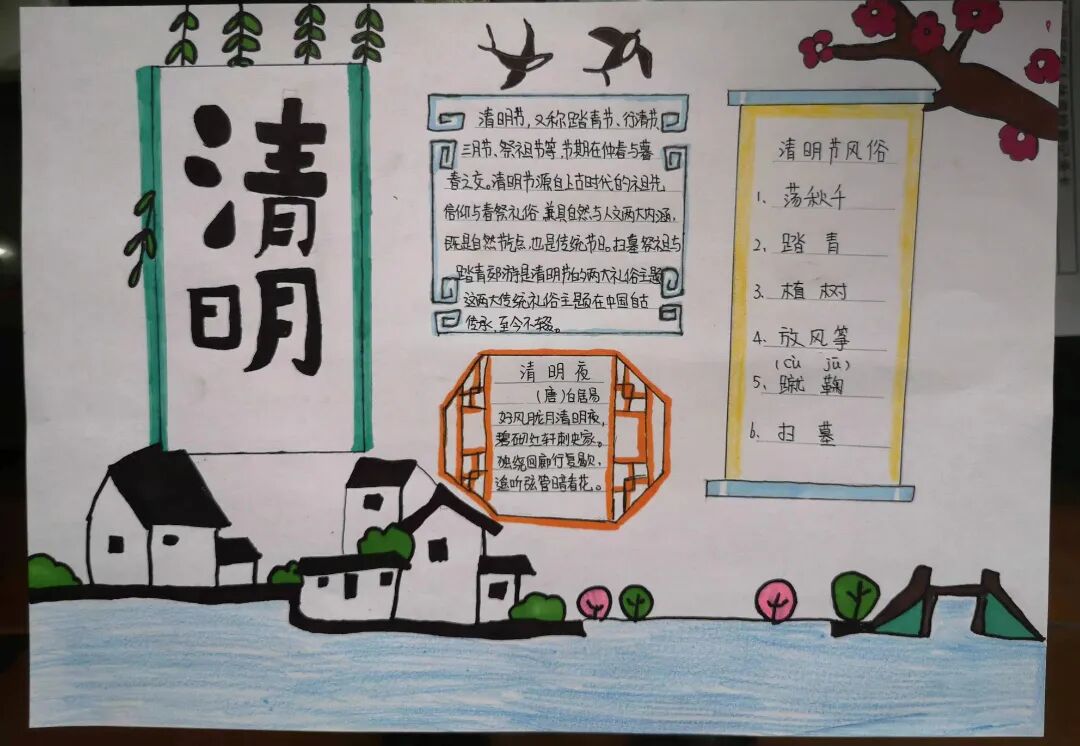 清
明
清明节,又称踏青节、行清节
三月节、祭祖节等,节期在仲春与暮
春之交。清明节源自上古时代的祖先
信仰与春祭礼俗,兼具自然与人文两大内涵,
既是自然节气点,也是传统节日。扫墓祭祖与
踏青郊游是清明节的两大礼俗主题
这两大传统礼俗主题在中国自古
传承,至今不辍。
清明夜
(唐)白居易
好风胧月清明夜,
碧砌红轩刺史家。
独绕回廊行复歇,
遥听弦管暗看花。
清明节风俗
1、荡秋千
2、踏青
3、植树
4、放风筝
(cù jū)
5、蹴鞠
6、扫墓